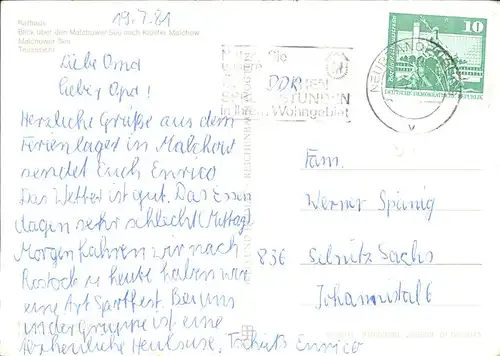 19.7.81
Rathaus
Blick über den Malchower See nach Kloster Malchow
Malchower See
Teilansicht
Liebe Oma
Lieber Opa!
Herzliche Grüße aus dem
Ferienlager in Malchow
sendet Euch Enrico
Das Wetter ist gut. Das Essen
dagen sehr schlecht (Mittag)
Morgen fahren wir nach
Rostock u heute haben wir
eine Art Sportfest. Bei uns
in der Gruppe ist eine
Heulsuse, Tschüß Enrico
DDR
STUNDEN
in Ihrem Wohngebiet
10
DEUTSCHE DEMOKRATISCHE
Fam.
Werner Spänig
836 Sebnitz Sachs
Johannistal 6